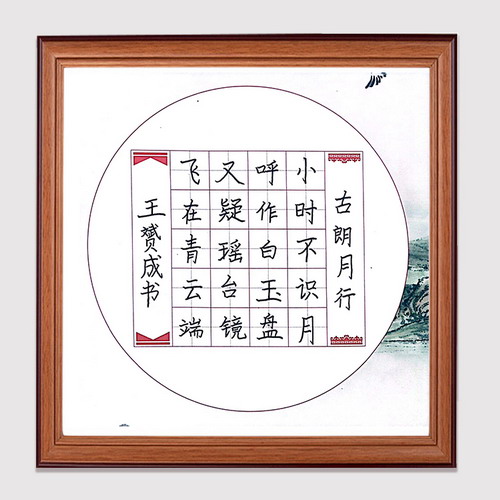 古朗月行
小时不识月
呼作白玉盘
又疑瑶台镜
飞在青云端
王赟成书